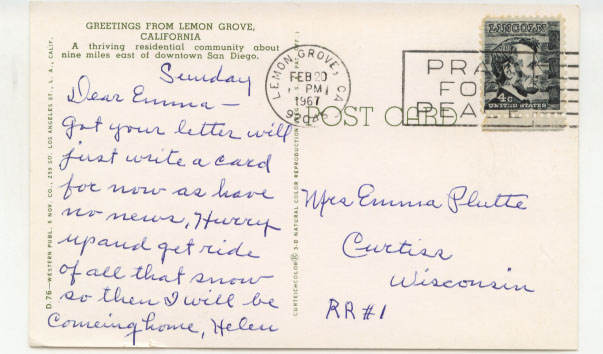 GREETINGS FROM LEMON GROVE,
CALIFORNIA
A thriving residential community about
nine miles east of downtown San Diego.
Sunday
Dear Emma –
Got your letter will
just write a card
for now as have
no news, Hurry
up and get ride
of all that snow
so then I will be
Comeing home, Helen
D.76—WESTERN PUBL. & NOV. CO., 259 SO. LOS ANGELES ST., L. A., CALIF.
CURTEICHCOLOR® 3-D NATURAL COLOR REPRODUCTION
LEMON GROVE, CA
FEB 20
PM
1967
PRAY
FOR
PEACE
LINCOLN
4c
UNITED STATES
POST CARD
Mrs Emma Plutte
Curtiss
Wisconsin
RR#1